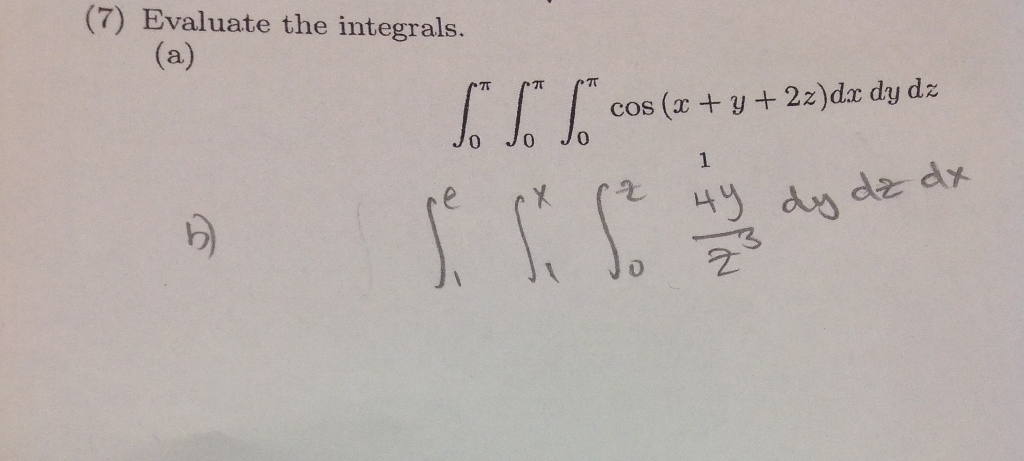 (7) Evaluate the integrals.
(a)
∫₀^π ∫₀^π ∫₀^π cos (x + y + 2z)dx dy dz
1
b) ∫₁^e ∫₁^x ∫₀^z 4y/z³ dy dz dx